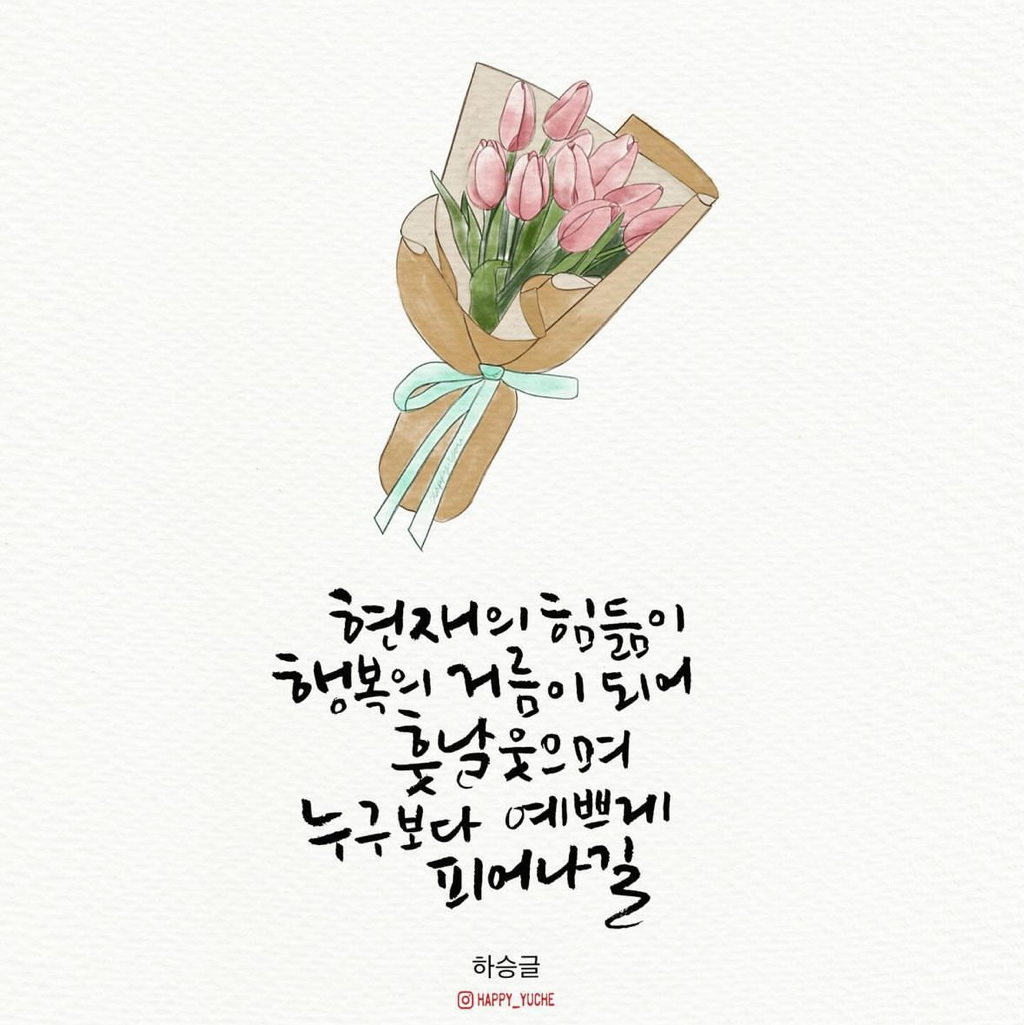 현재의 힘듦이
행복의 거름이 되어
훗날 웃으며
누구보다 예쁘게
피어나길
하승글
HAPPY_YUCHE